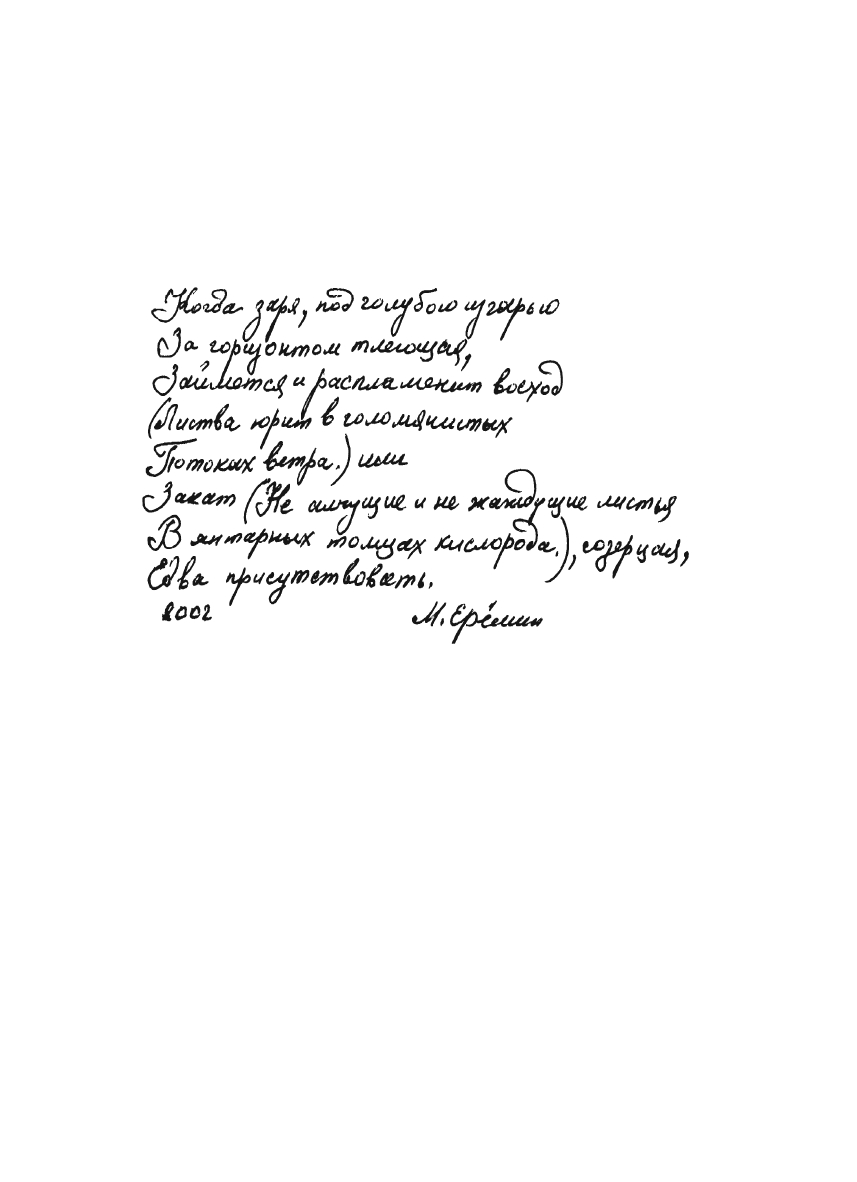 Когда заря, под голубою изгарью
За горизонтом тлеющая,
Займется и распламенит восход
(Листва юрит в голомянистых
Потоках ветра.) или
Закат (Не алчущие и не жаждущие листья
В янтарных толщах кислорода.), созерцая,
Едва присутствовать.
2002 М. Ерёмин